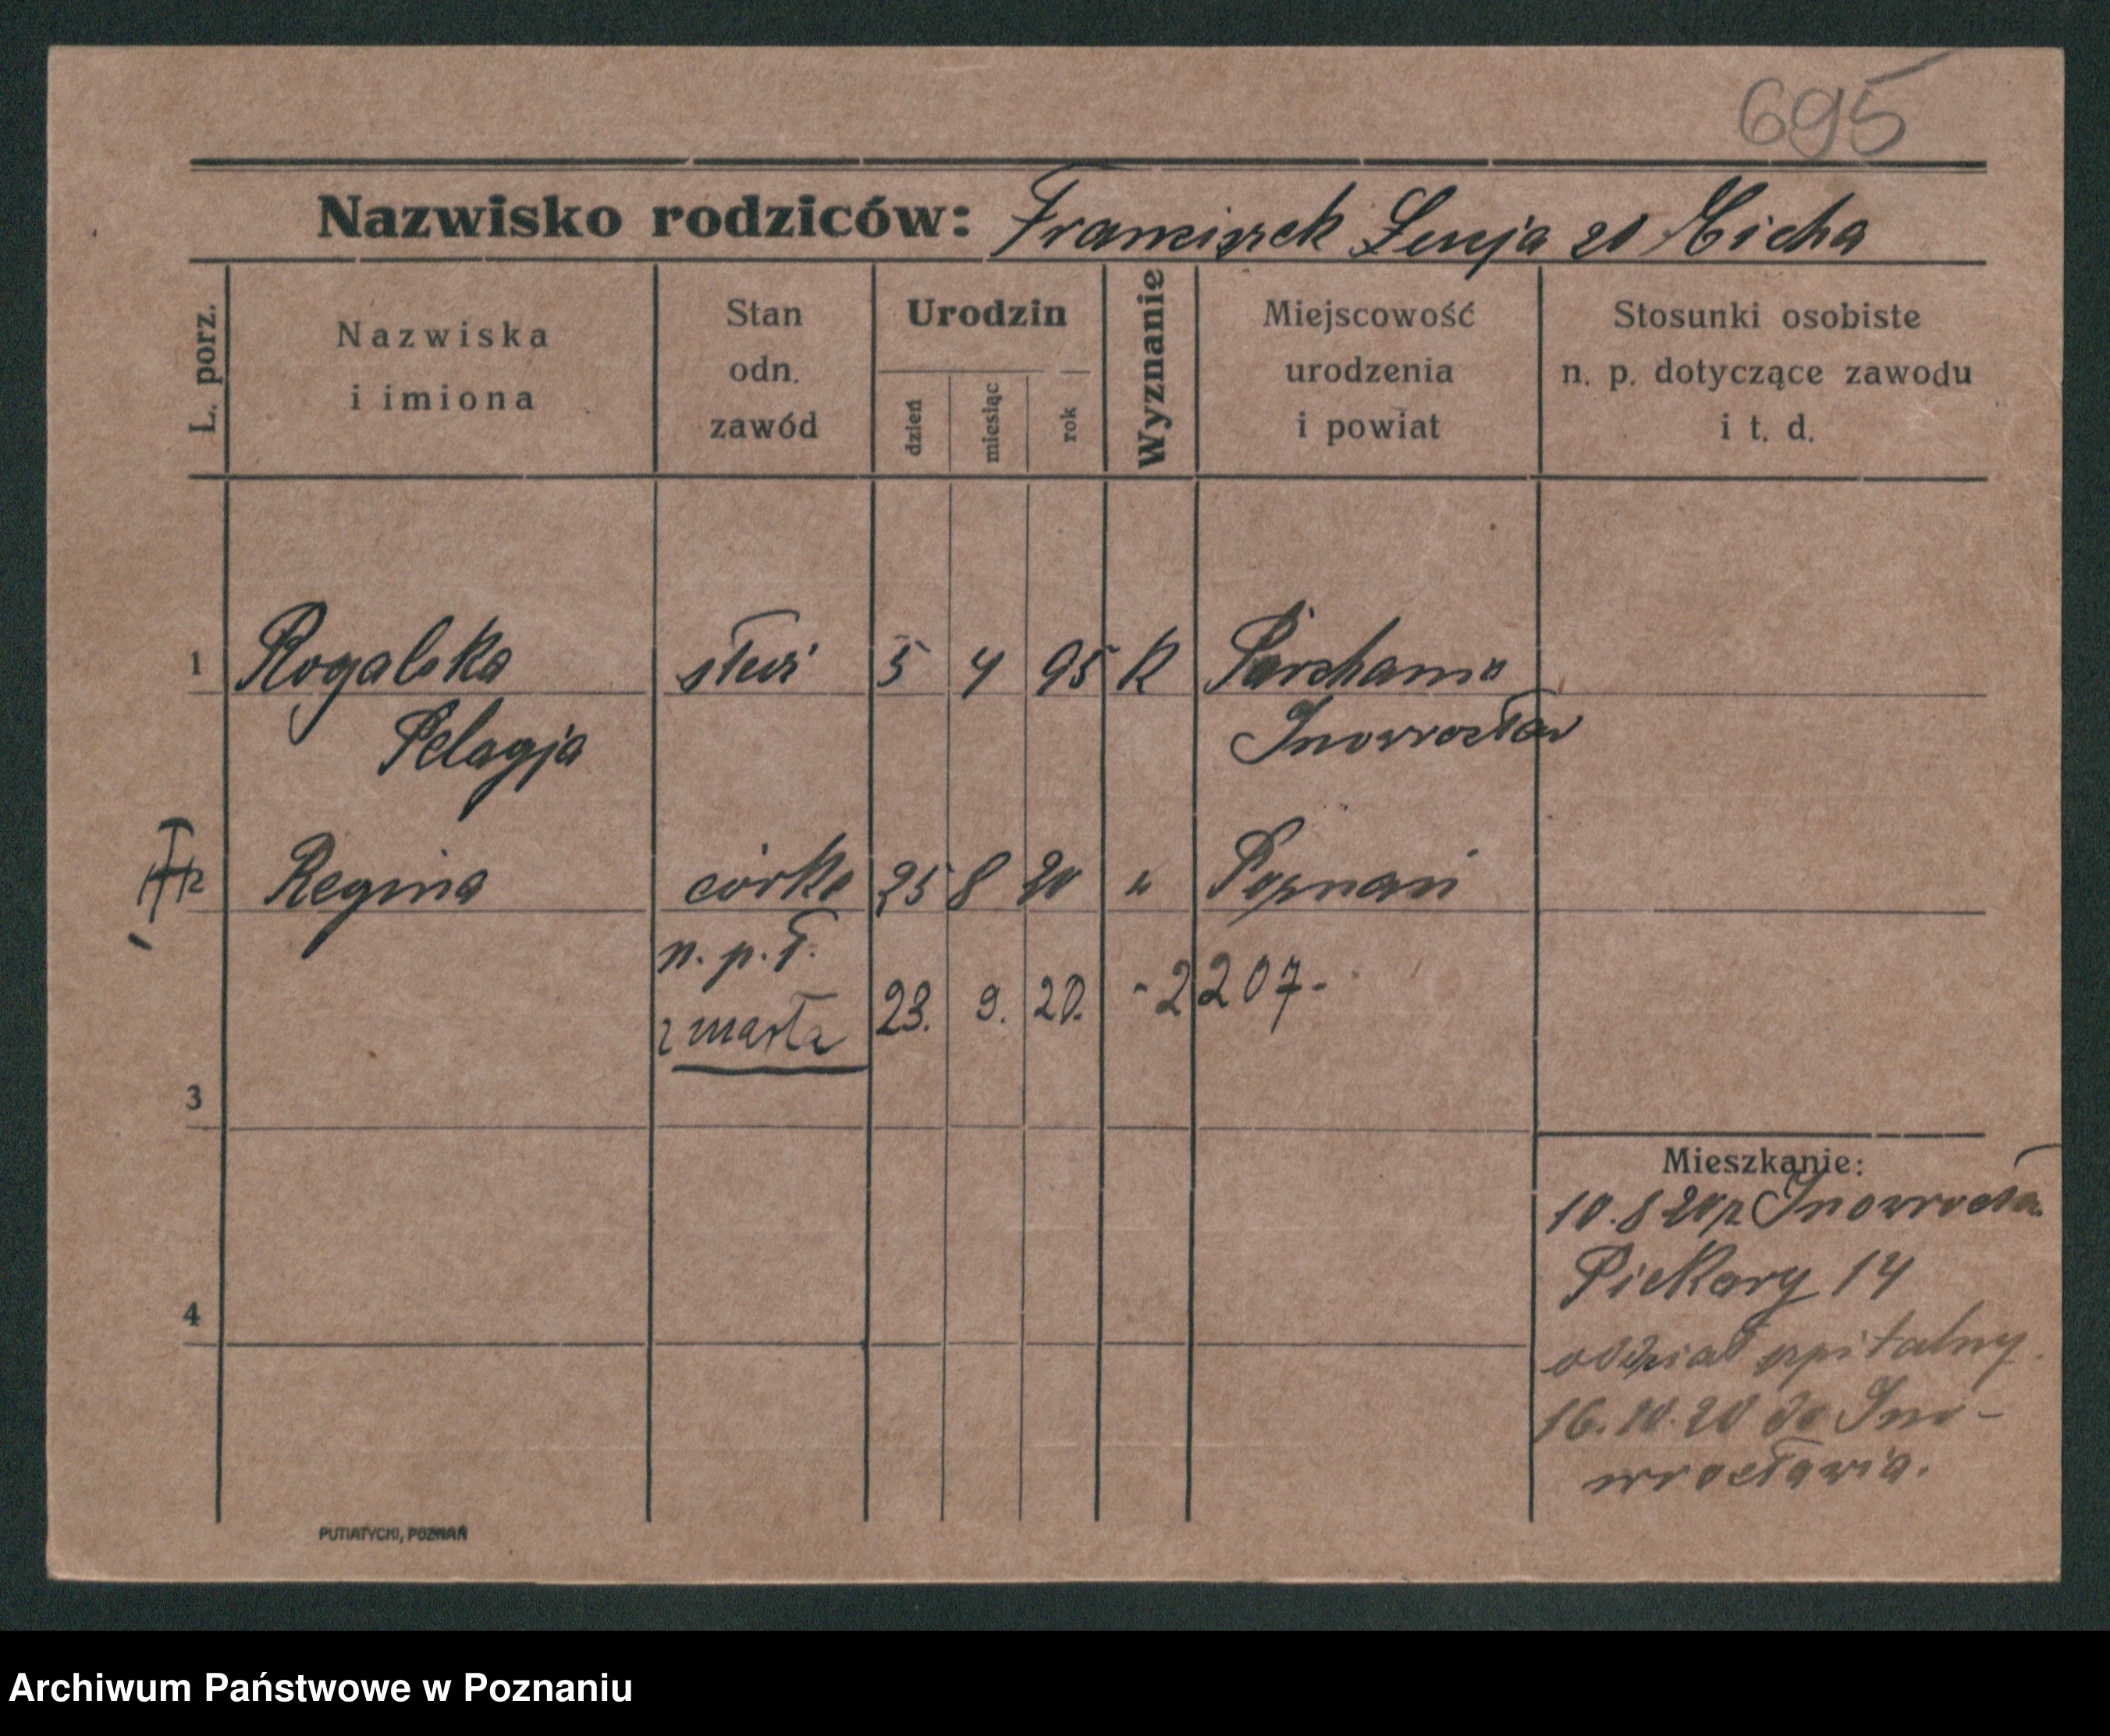 695
Nazwisko rodziców: Franciszek Lucja zd Micha
L. porz.
Nazwiska
i imiona
Stan
odn.
zawód
Urodzin
dzień
miesiąc
rok
Wyznanie
Miejscowość
urodzenia
i powiat
Stosunki osobiste
n. p. dotyczące zawodu
i t. d.
1 Rogalska służ 5 4 95 K Parchanie
Pelagja Inowrocław
2 Regina córka 25 8 20 " Poznań
n. p. ł.
zmarła 23. 9. 20. - 2207 -
3
4
Mieszkanie:
10.8 20 z Inowrocła
Piekary 14
oddział szpitalny.
16.10.20 do Ino-
wrocławia.
PUTIATYCKI, POZNAŃ
Archiwum Państwowe w Poznaniu